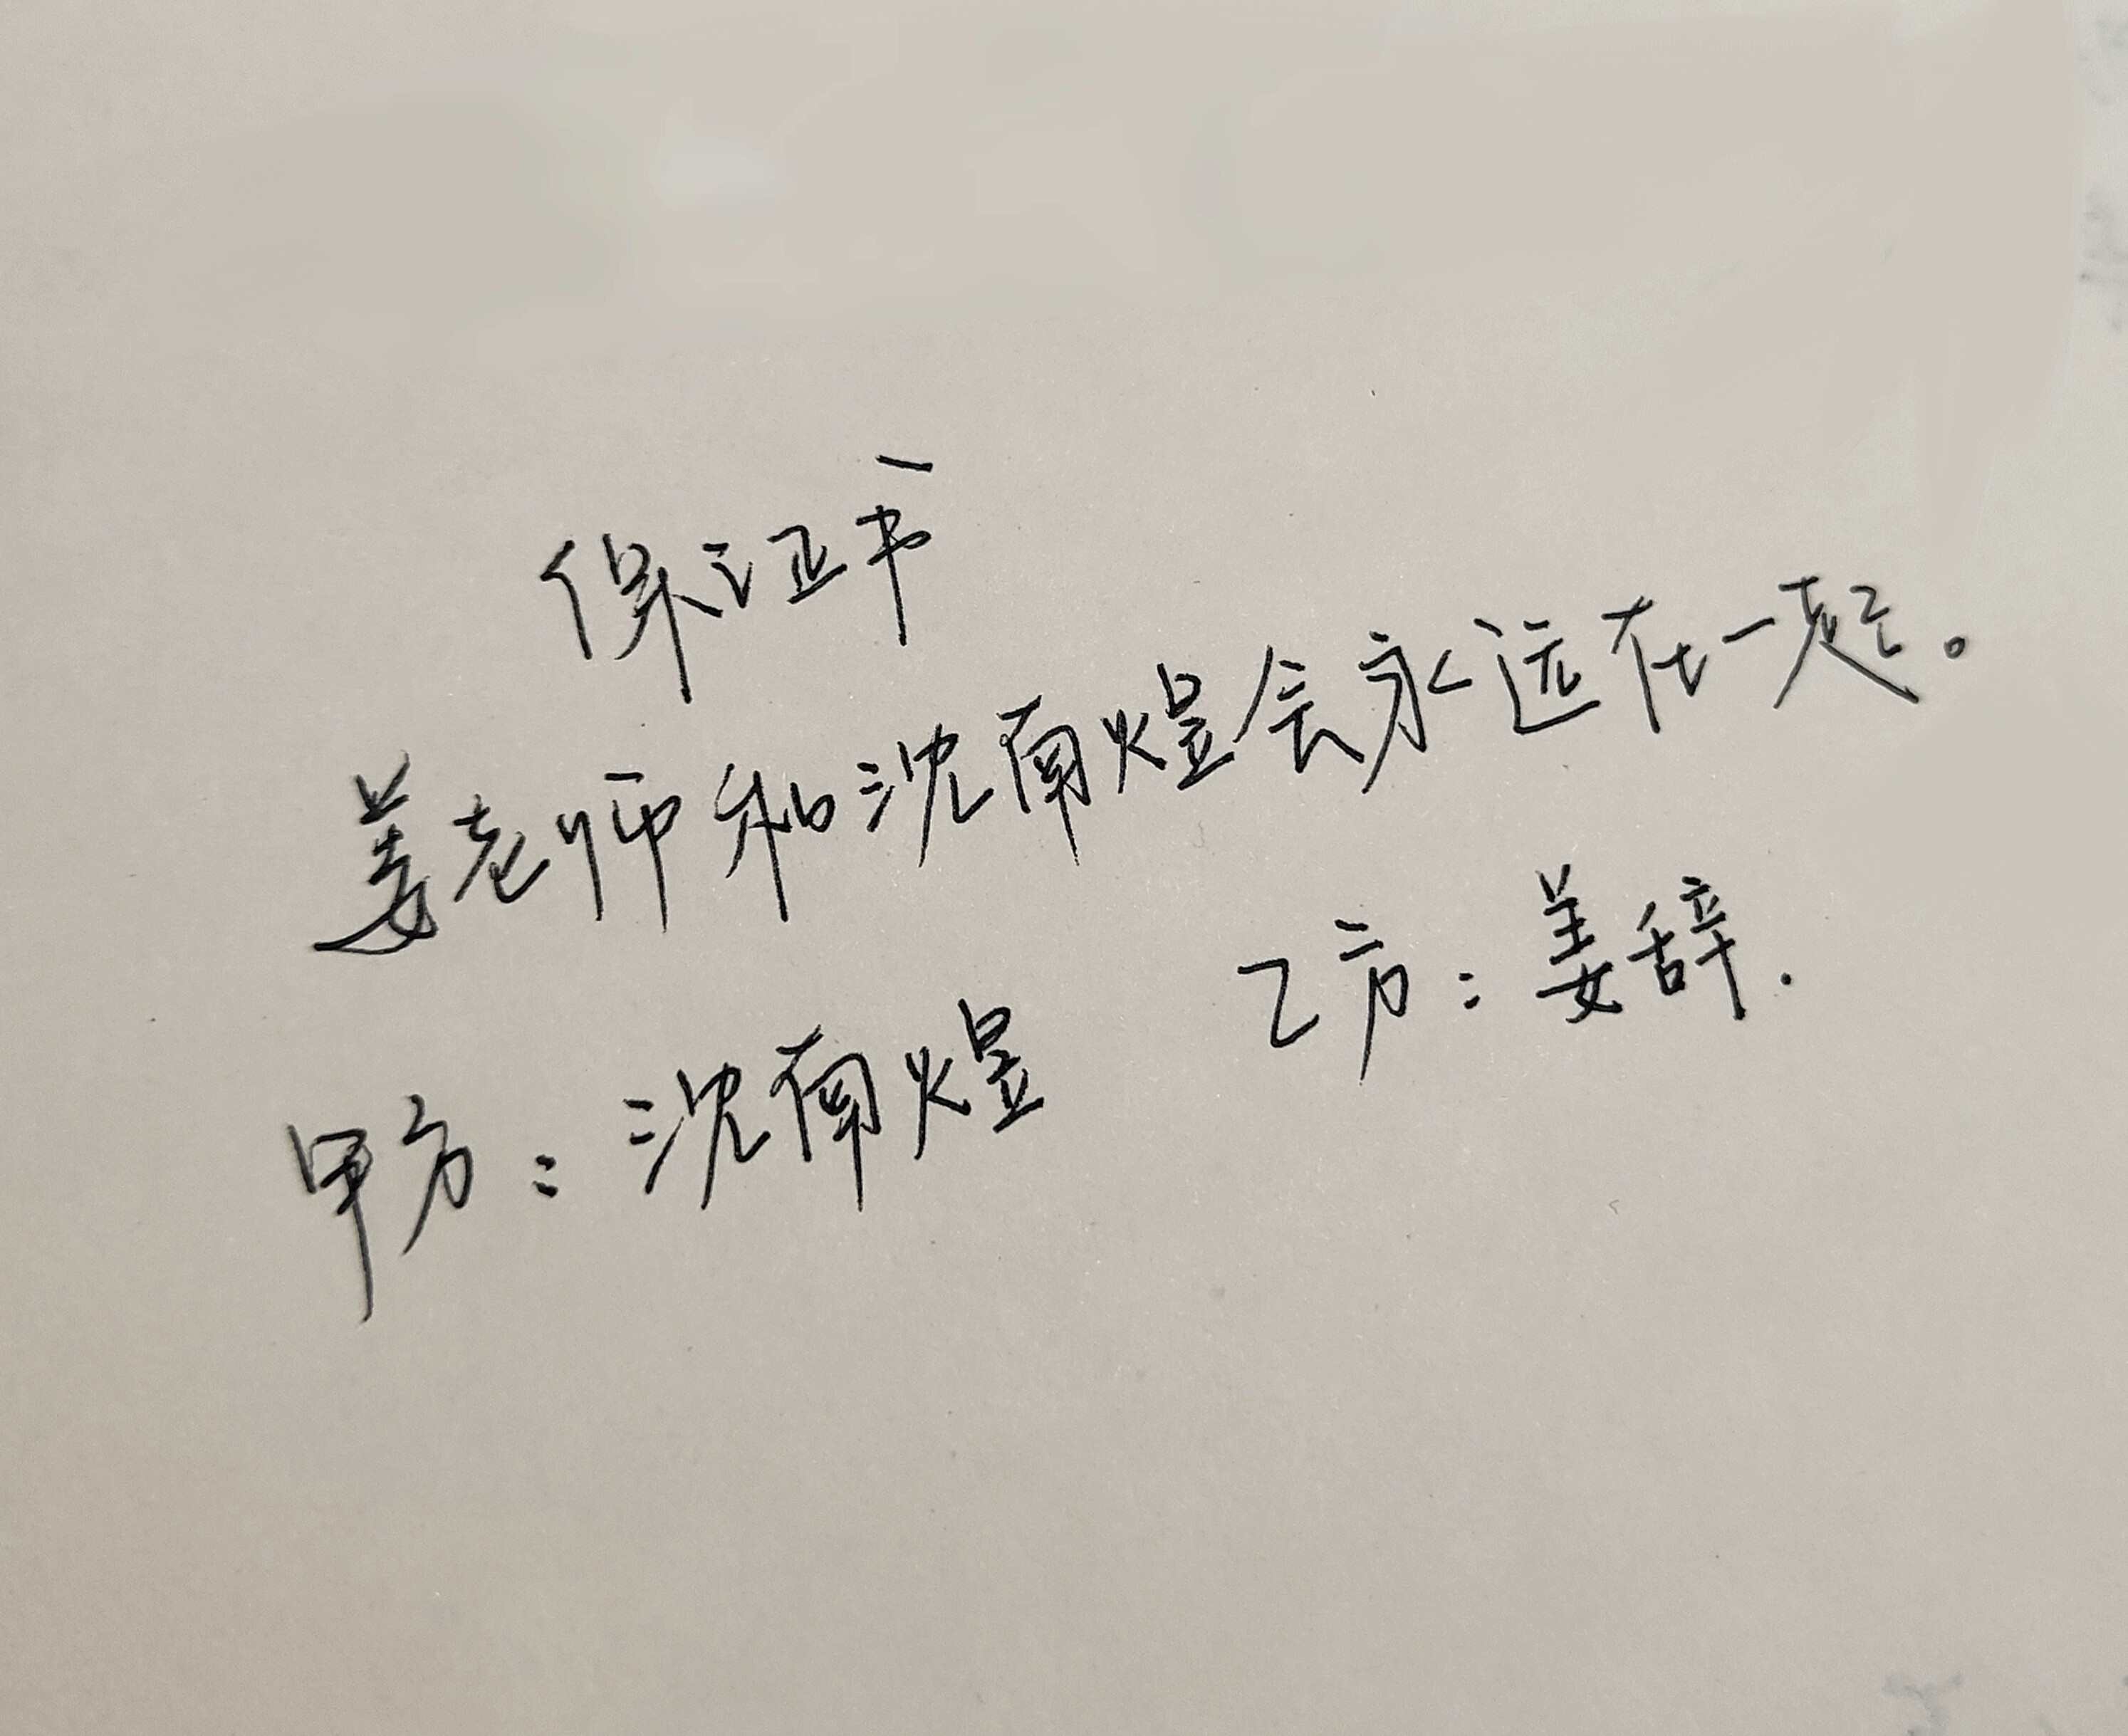 保证书
姜老师和沈南煜会永远在一起。
甲方：沈南煜 乙方：姜辞.